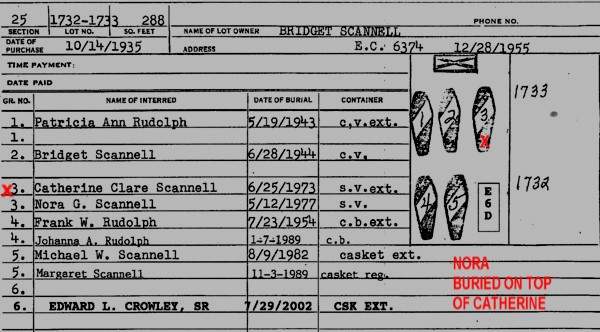 25 1732-1733 288 PHONE NO.
SECTION LOT NO. SQ. FEET NAME OF LOT OWNER BRIDGET SCANNELL
DATE OF PURCHASE 10/14/1935 ADDRESS E.C. 6374 12/28/1955
TIME PAYMENT:
DATE PAID
GR. NO. NAME OF INTERRED DATE OF BURIAL CONTAINER
1. Patricia Ann Rudolph 5/19/1943 c,v.ext.
1.
2. Bridget Scannell 6/28/1944 c.v.
X 3. Catherine Clare Scannell 6/25/1973 s.v.ext.
3. Nora G. Scannell 5/12/1977 s.v.
4. Frank W. Rudolph 7/23/1954 c.b.ext.
4. Johanna A. Rudolph 1-7-1989 c.b.
5. Michael W. Scannell 8/9/1982 casket ext.
5. Margaret Scannell 11-3-1989 casket reg.
6.
6. EDWARD L. CROWLEY, SR 7/29/2002 CSK EXT.
1 2 3 1733
X
4 5 1732
E
6
D
NORA
BURIED ON TOP
OF CATHERINE